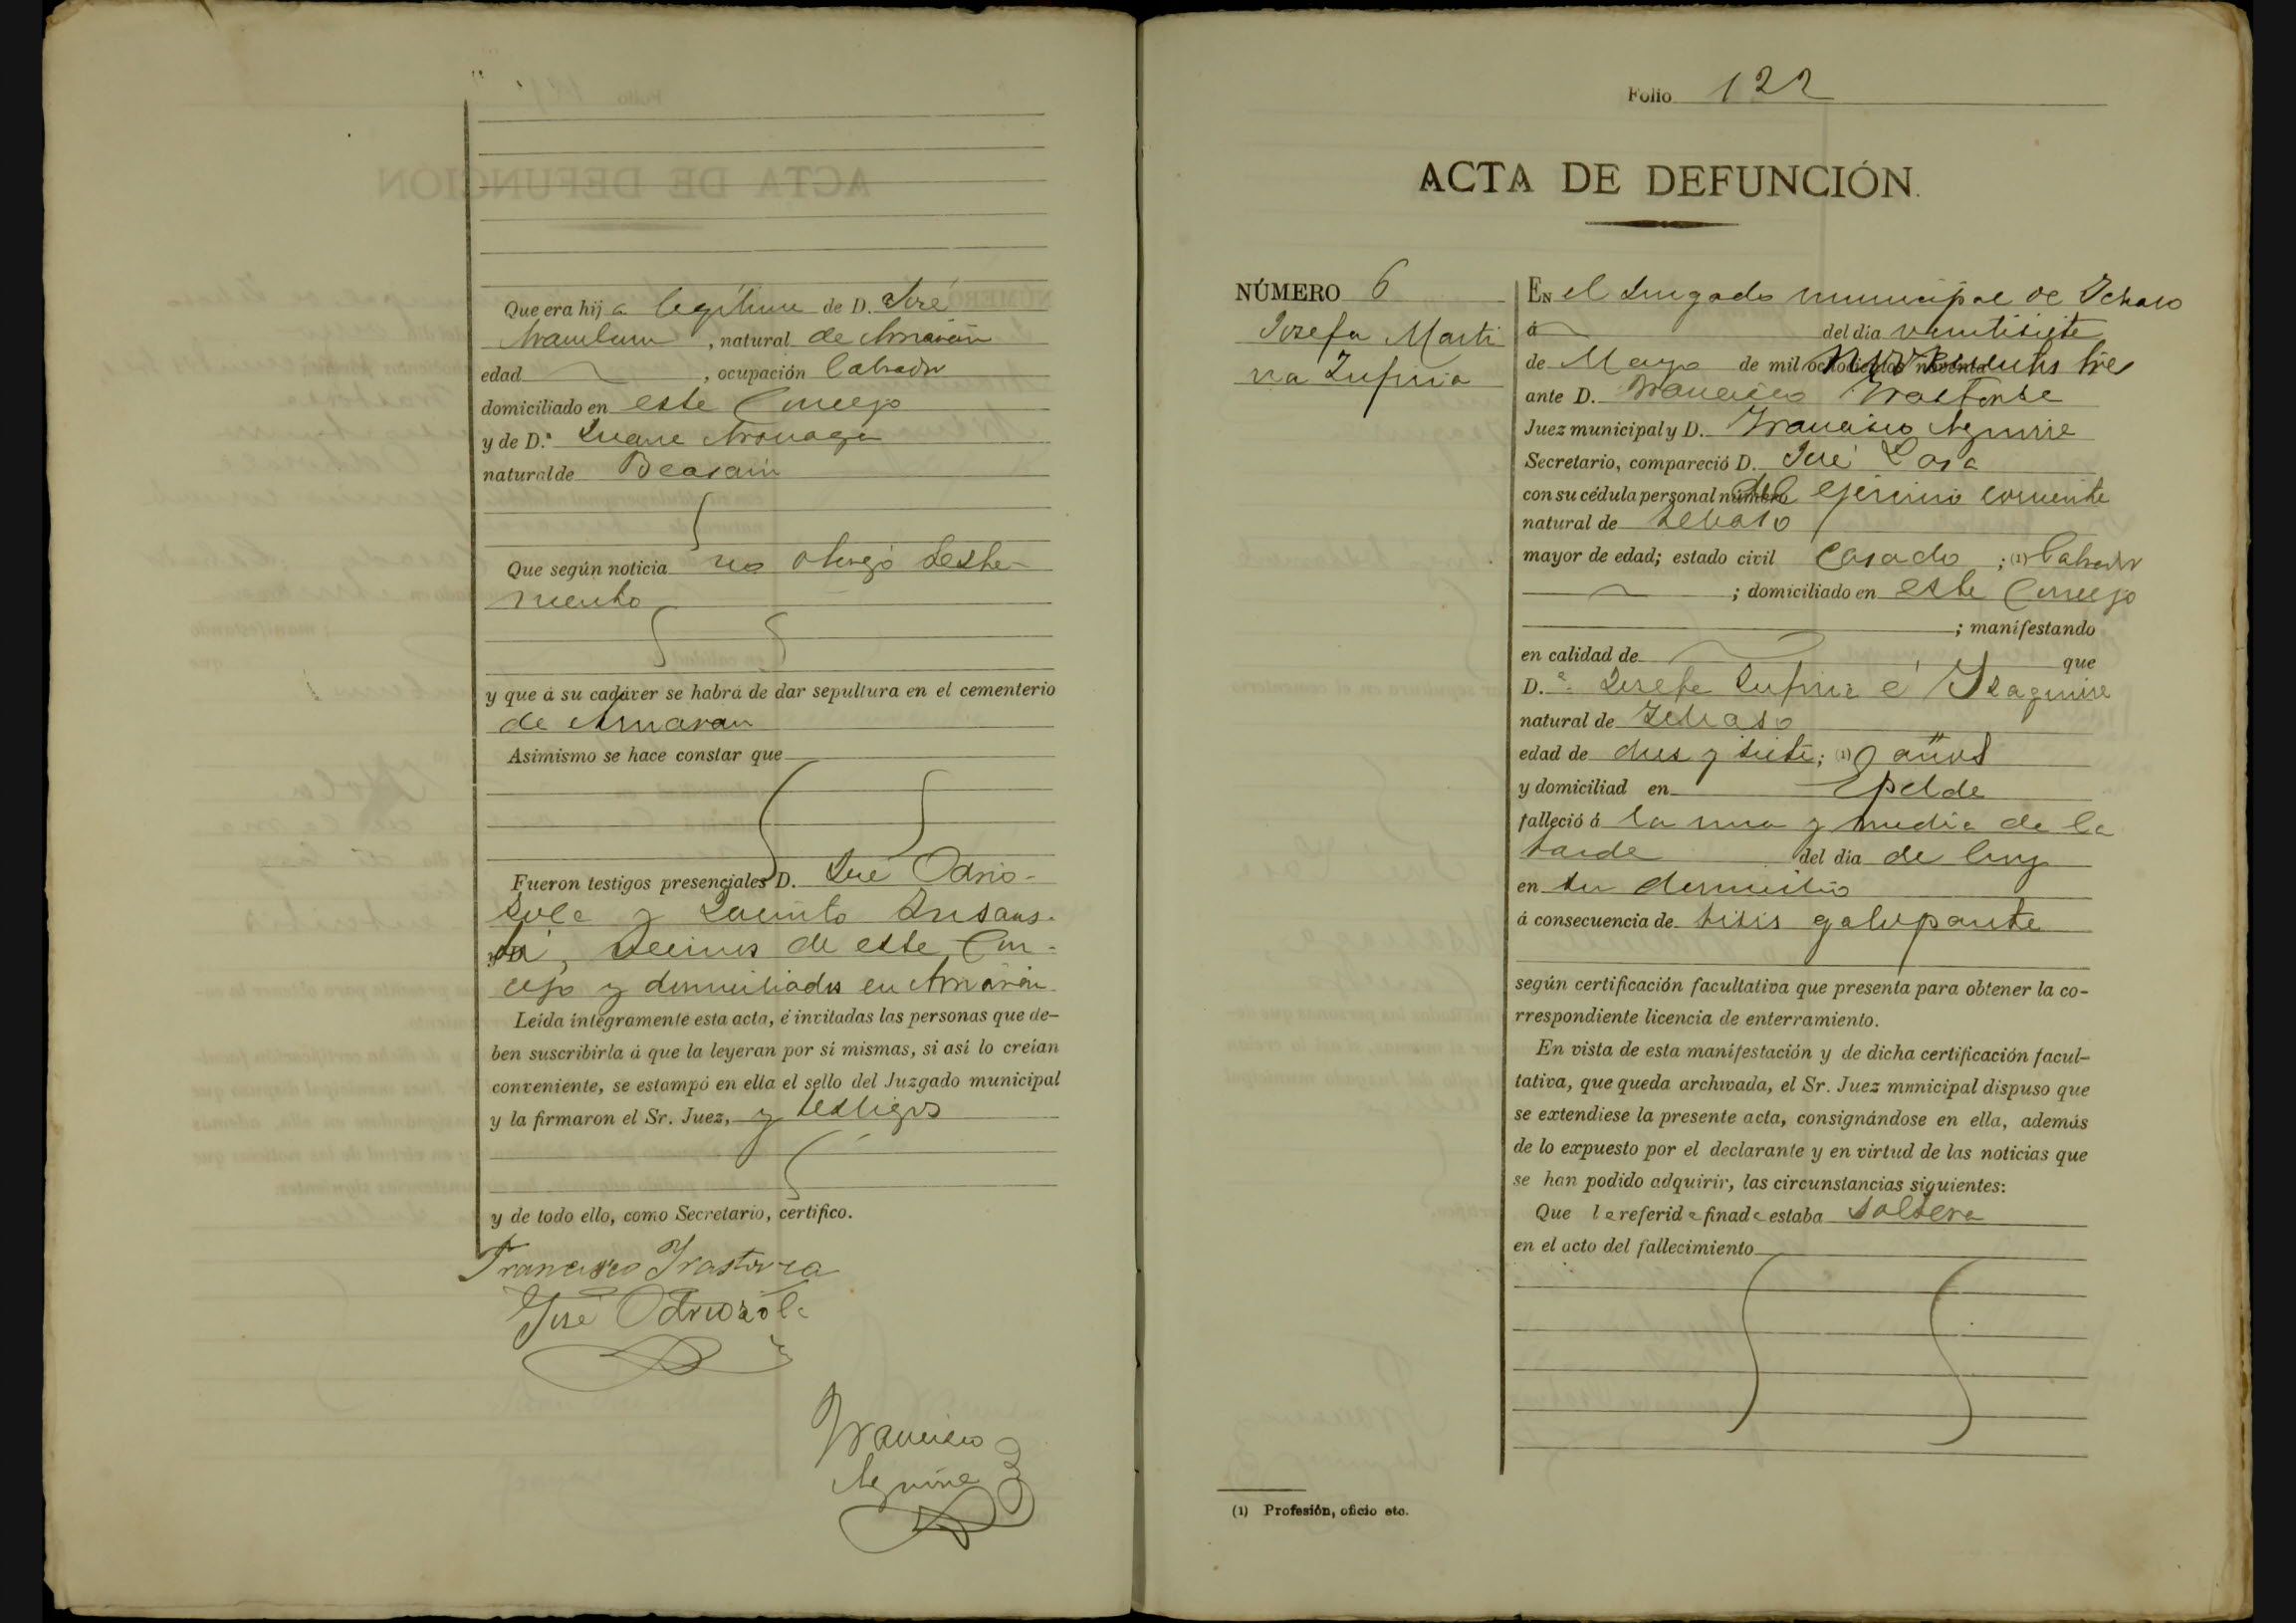 Que era hija legítima de D. José
Aramburu, natural de Arnarán
edad , ocupación labrador
domiciliado en este Concejo
y de D.ª Juana Arsuaga
natural de Beasain
Que según noticia no otorgó testa-
mento
y que á su cadáver se habrá de dar sepultura en el cementerio
de Arnaran
Asimismo se hace constar que
Fueron testigos presenciales D. José Odrio-
zola y Jacinto
vecinos de este Con-
cejo y domiciliados en Arnarán
Leída íntegramente esta acta, é invitadas las personas que de-
ben suscribirla á que la leyeran por sí mismas, si así lo creían
conveniente, se estampó en ella el sello del Juzgado municipal
y la firmaron el Sr. Juez, y testigos
y de todo ello, como Secretario, certifico.
Francisco Irastorza
José Odriozola
Francisco
Aguirre
Folio 122
ACTA DE DEFUNCIÓN.
NÚMERO 6
Josefa Marti
na Zufiria
EN el Juzgado municipal de Ichaso
á del dia veintisiete
de Mayo de mil novecientos tres
ante D. Francisco Irastorza
Juez municipal y D. Francisco Aguirre
Secretario, compareció D. José Lasa
con su cédula personal del ejercicio corriente
natural de Ichaso
mayor de edad; estado civil casado ; (1) labrador
; domiciliado en este Concejo
; manifestando
en calidad de que
D.ª Josefa Zufiria é Izaguirre
natural de Ichaso
edad de dies y siete; (1) años
y domiciliad en Epelde
falleció á la una y media de la
tarde del dia de hoy
en su domicilio
á consecuencia de tisis galopante
según certificación facultativa que presenta para obtener la co-
rrespondiente licencia de enterramiento.
En vista de esta manifestación y de dicha certificación facul-
tativa, que queda archivada, el Sr. Juez mnnicipal dispuso que
se extendiese la presente acta, consignándose en ella, además
de lo expuesto por el declarante y en virtud de las noticias que
se han podido adquirir, las circunstancias siguientes:
Que la referida finada estaba soltera
en el acto del fallecimiento
(1) Profesión, oficio etc.